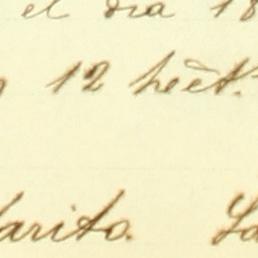 el dia 18
12 hèct.
arito. La